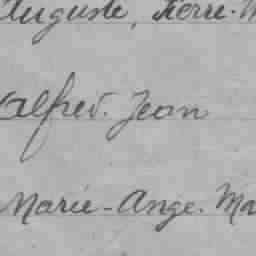 Auguste, Pierre.
Alfred. Jean
Marie-Ange. Ma